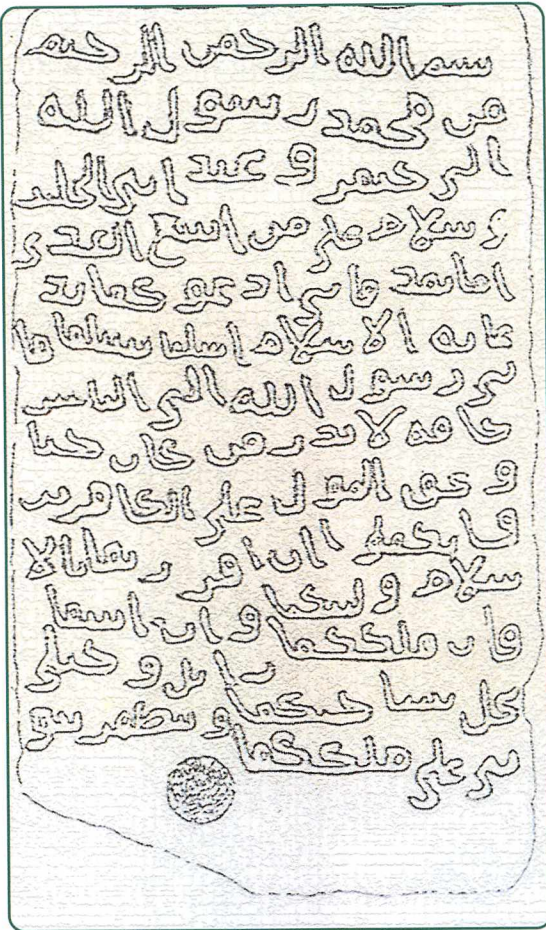 بسم الله الرحمن الرحيم
من محمد رسول الله
الى جيفر و عبد ابنى الجلند
ى سلام على من اتبع الهدى
اما بعد فانى ادعوكما بد
عاية الاسلام اسلما تسلما فا
نى رسول الله الى الناس
كافة لانذر من كان حيا
و يحق القول على الكافرين
فانكما ان اقررتما بالا
سلام وليتكما و ان ابيتما
فان ملككما زايل و خيلى
تحل بساحتكما و تظهر نبو
تى على ملككما